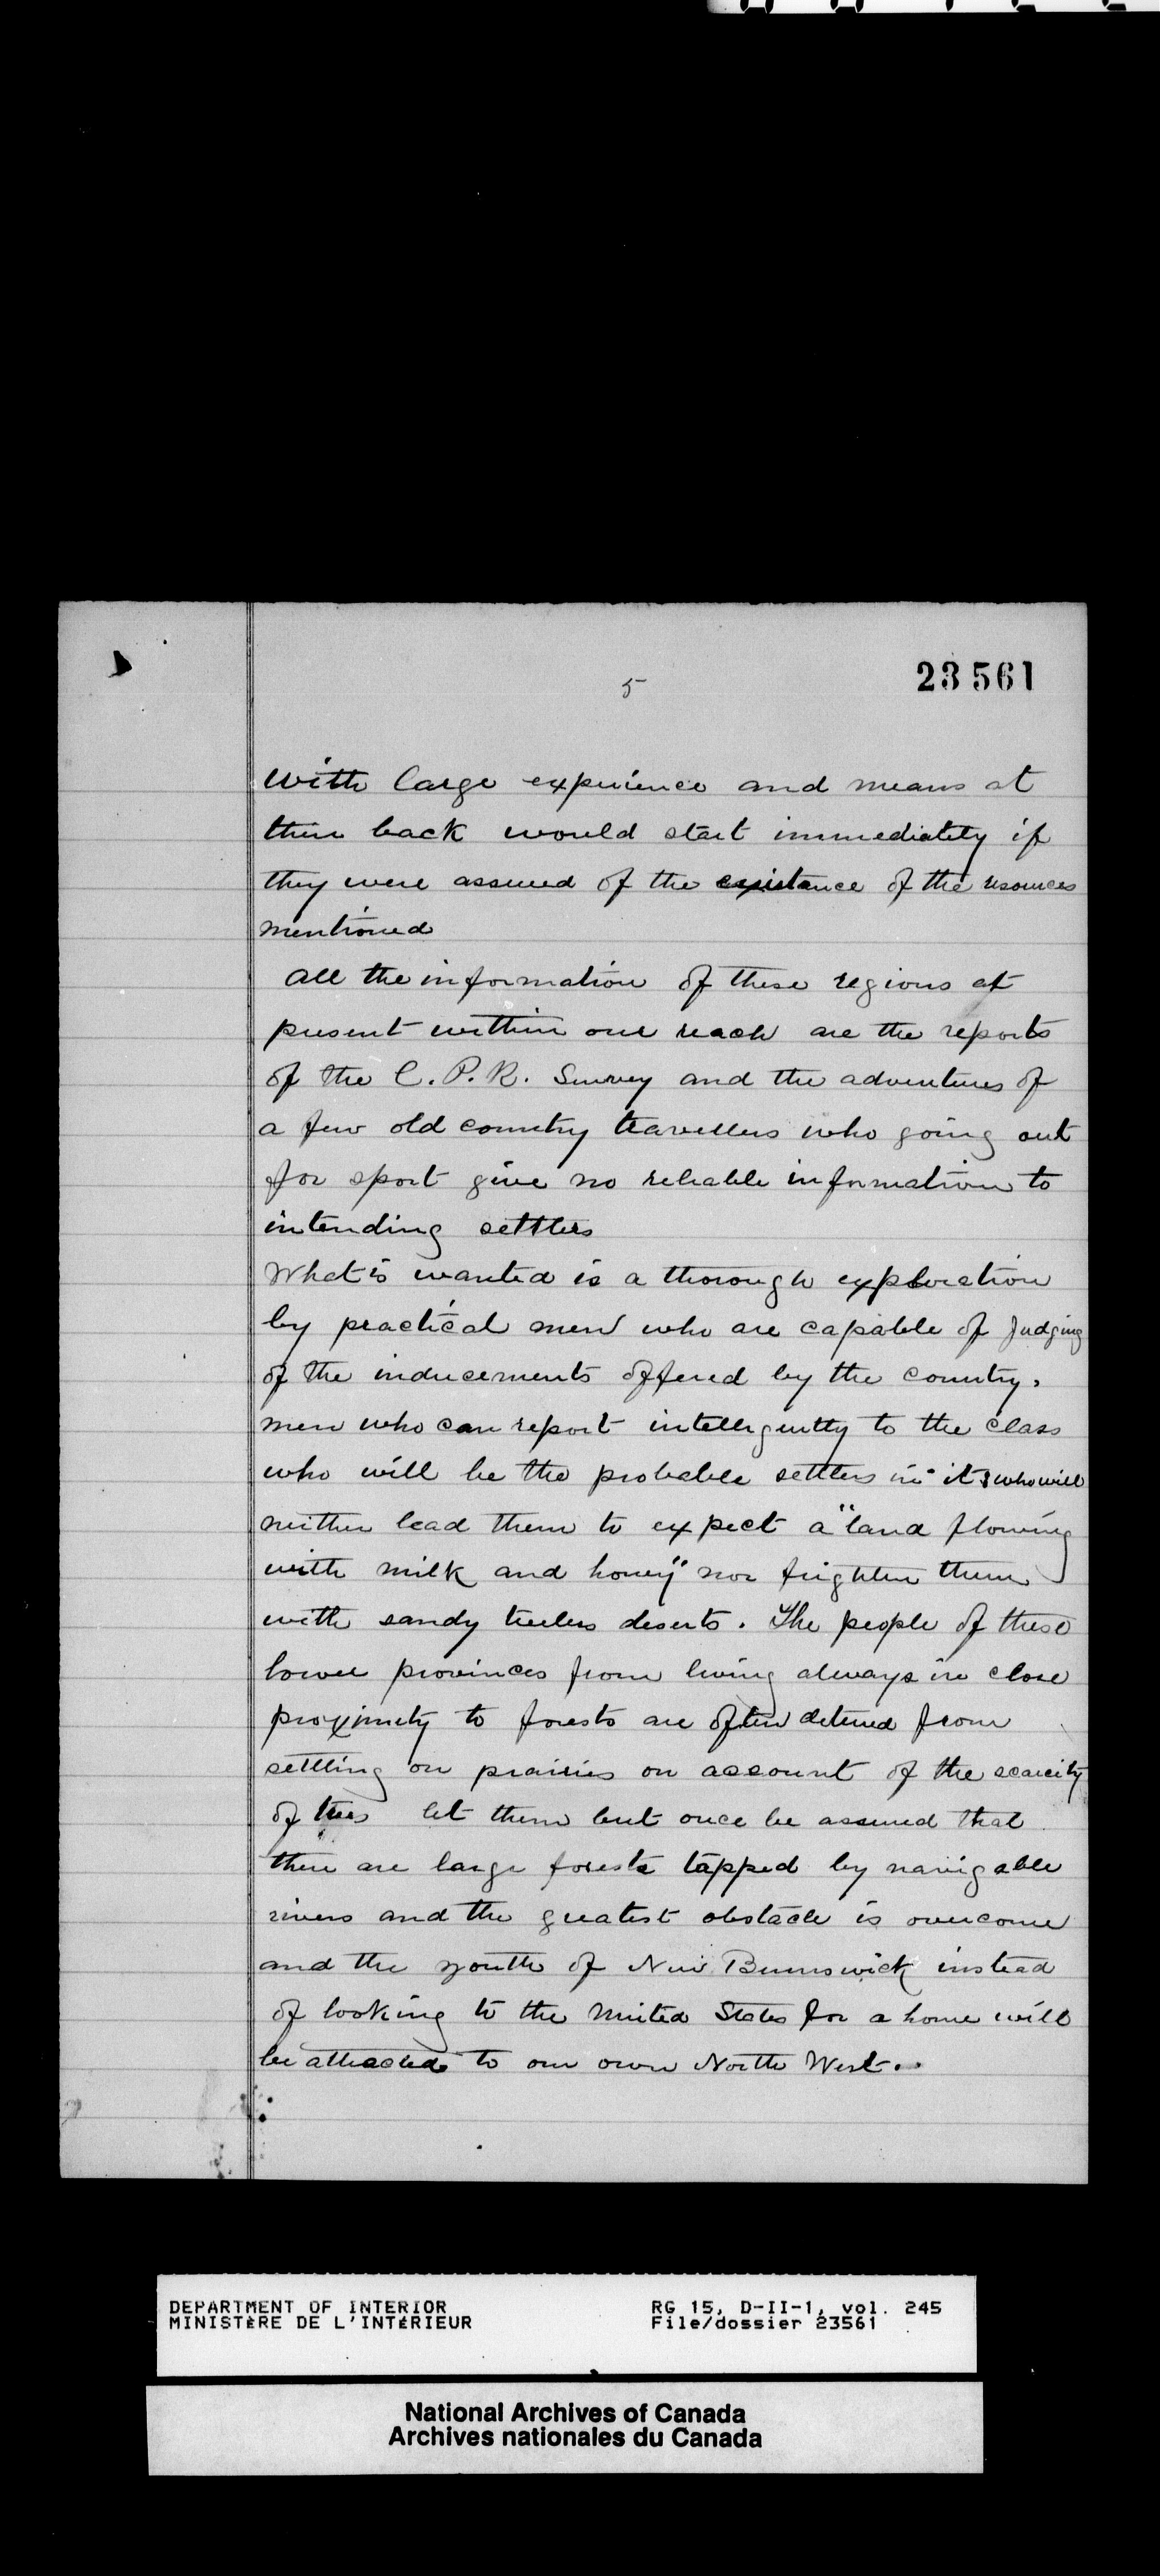 5
23561
with large experience and means at
their back would start immediately if
they were assured of the existance of the resources
mentioned
All the information of these regions at
present within our reach are the reports
of the C.P.R. Survey and the adventures of
a few old country travellers who going out
for sport give no reliable information to
intending settlers
What is wanted is a thorough exploration
by practical men who are capable of Judging
of the inducements offered by the country,
men who can report intelligently to the class
who will be the probable settlers in it & who will
neither lead them to expect a "land flowing
with milk and honey" nor frighten them
with sandy treeless deserts. The people of these
lower provinces from living always in close
proximity to forests are often detered from
settling on prairies on account of the scarcity
of trees let them but once be assured that
there are large forests tapped by navigable
rivers and the greatest obstacle is overcome
and the youth of New Brunswick instead
of looking to the United States for a home will
be attracted to our own North West..
DEPARTMENT OF INTERIOR RG 15, D-II-1, vol. 245
MINISTÈRE DE L'INTÉRIEUR File/dossier 23561
National Archives of Canada
Archives nationales du Canada